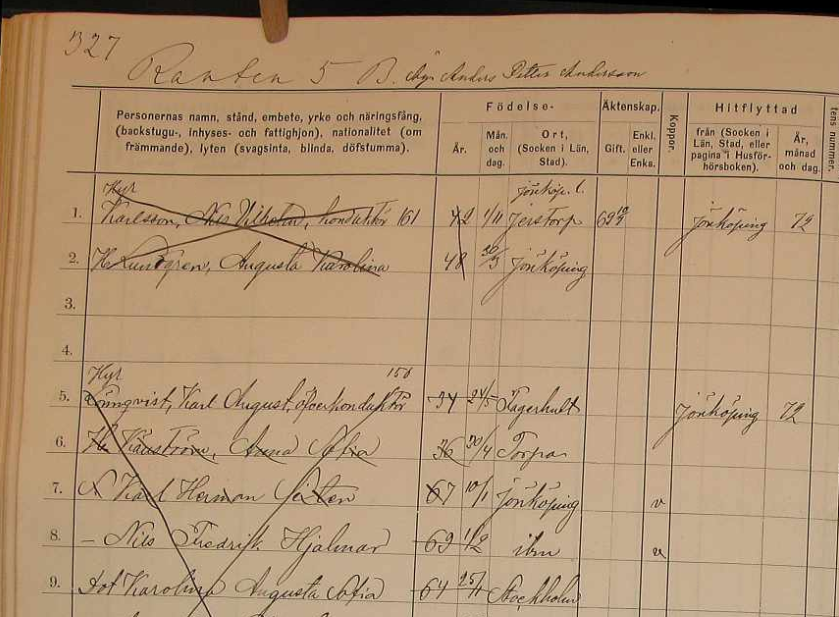 327
Ranten 5 B. Äg. Anders Petter Andersson
Personernas namn, stånd, embete, yrke och näringsfång, (backstugu-, inhyses- och fattighjon), nationalitet (om främmande), lyten (svagsinta, blinda, döfstumma).
Födelse-
År.
Mån. och dag.
Ort, (Socken i Län, Stad).
Äktenskap.
Gift.
Enkl. eller Enka.
Koppor.
Hitflyttad
från (Socken i Län, Stad, eller pagina i Husförhörsboken).
År, månad och dag.
tens nummer.
Hyr jönköp. l.
1. Karlsson, Nils Vilhelm, konduktör 161 42 1/11 Jerstorp 69 Jönköping 72
2. H. Lundgren, Augusta Karolina 48 30/3 Jönköping
3.
4.
Hyr 158
5. Lönnqvist, Karl August, öfverkonduktör 34 24/5 Hagerhult Jönköping 72
6. H. Anna Sofia 36 30/4 Torpa
7. Karl Herman 67 10/1 Jönköping v
8. – Nils Fredrik Hjalmar 69 1/2 ibm v
9. Dot Karolina Augusta Sofia 64 Stockholm